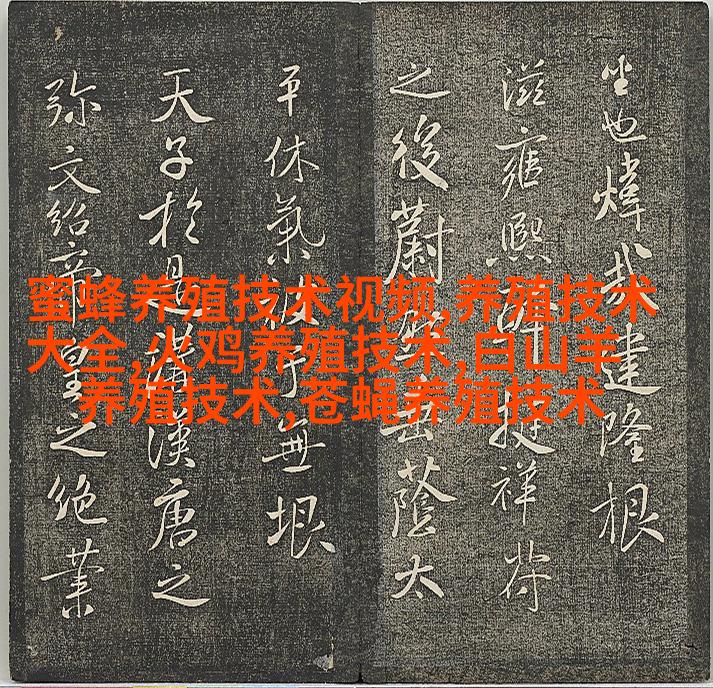 蜜蜂养殖技术视频,养殖技术
大全,火鸡养殖技术,白山羊
养殖技术,苍蝇养殖技术
也煒哉建隆根
滋雍熙挺祥符
之後蔚岳蔭太
平休氣被乎無垠
天子於是講漢唐之
弥文紹帝皇之絶業